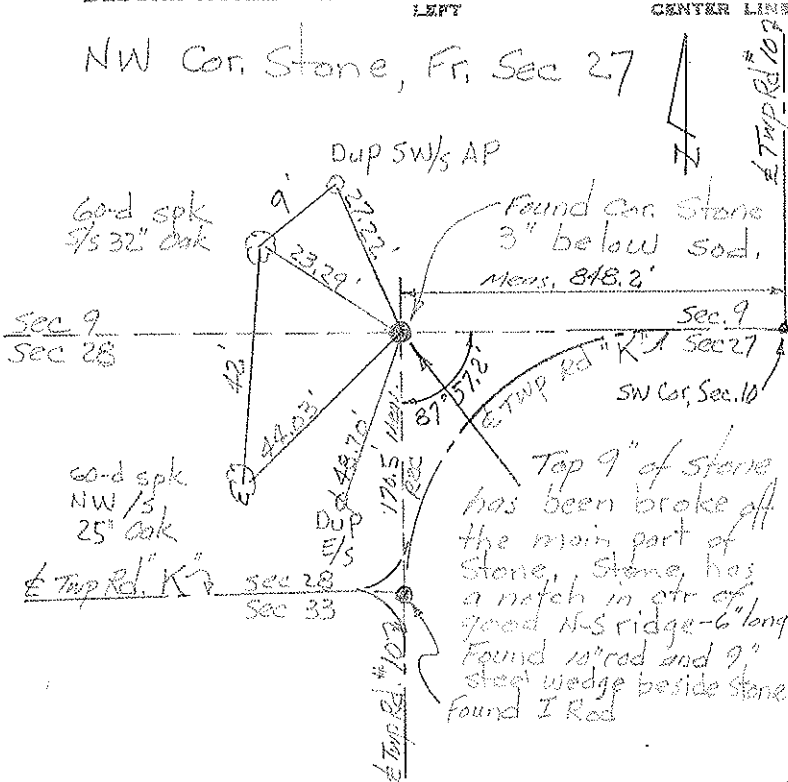 LEFT
CENTER LINE
NW Cor. Stone, Fr. Sec 27
℄ Twp Rd # 107
Dup SW/s AP
60-d spk
S/s 32" Oak
9'
27.22'
23.29'
Found Cor. Stone
3" below sod.
Meas. 848.2'
Sec 9
Sec 28
Sec. 9
Sec 27
℄ Twp Rd "K"
SW Cor, Sec. 10
42'
44.03'
48.70'
87°57.2'
176.5' Meas.
Rec
60-d spk
NW/s
25" Oak
Dup
E/s
Top 9" of stone
has been broke off
the main part of
Stone. Stone has
a notch in ctr of
good N-S ridge-6" long
Found 10" rod and 9"
steel wedge beside stone
Found I Rod
℄ Twp Rd. "K"
Sec 28
Sec 33
℄ Twp Rd. # 107